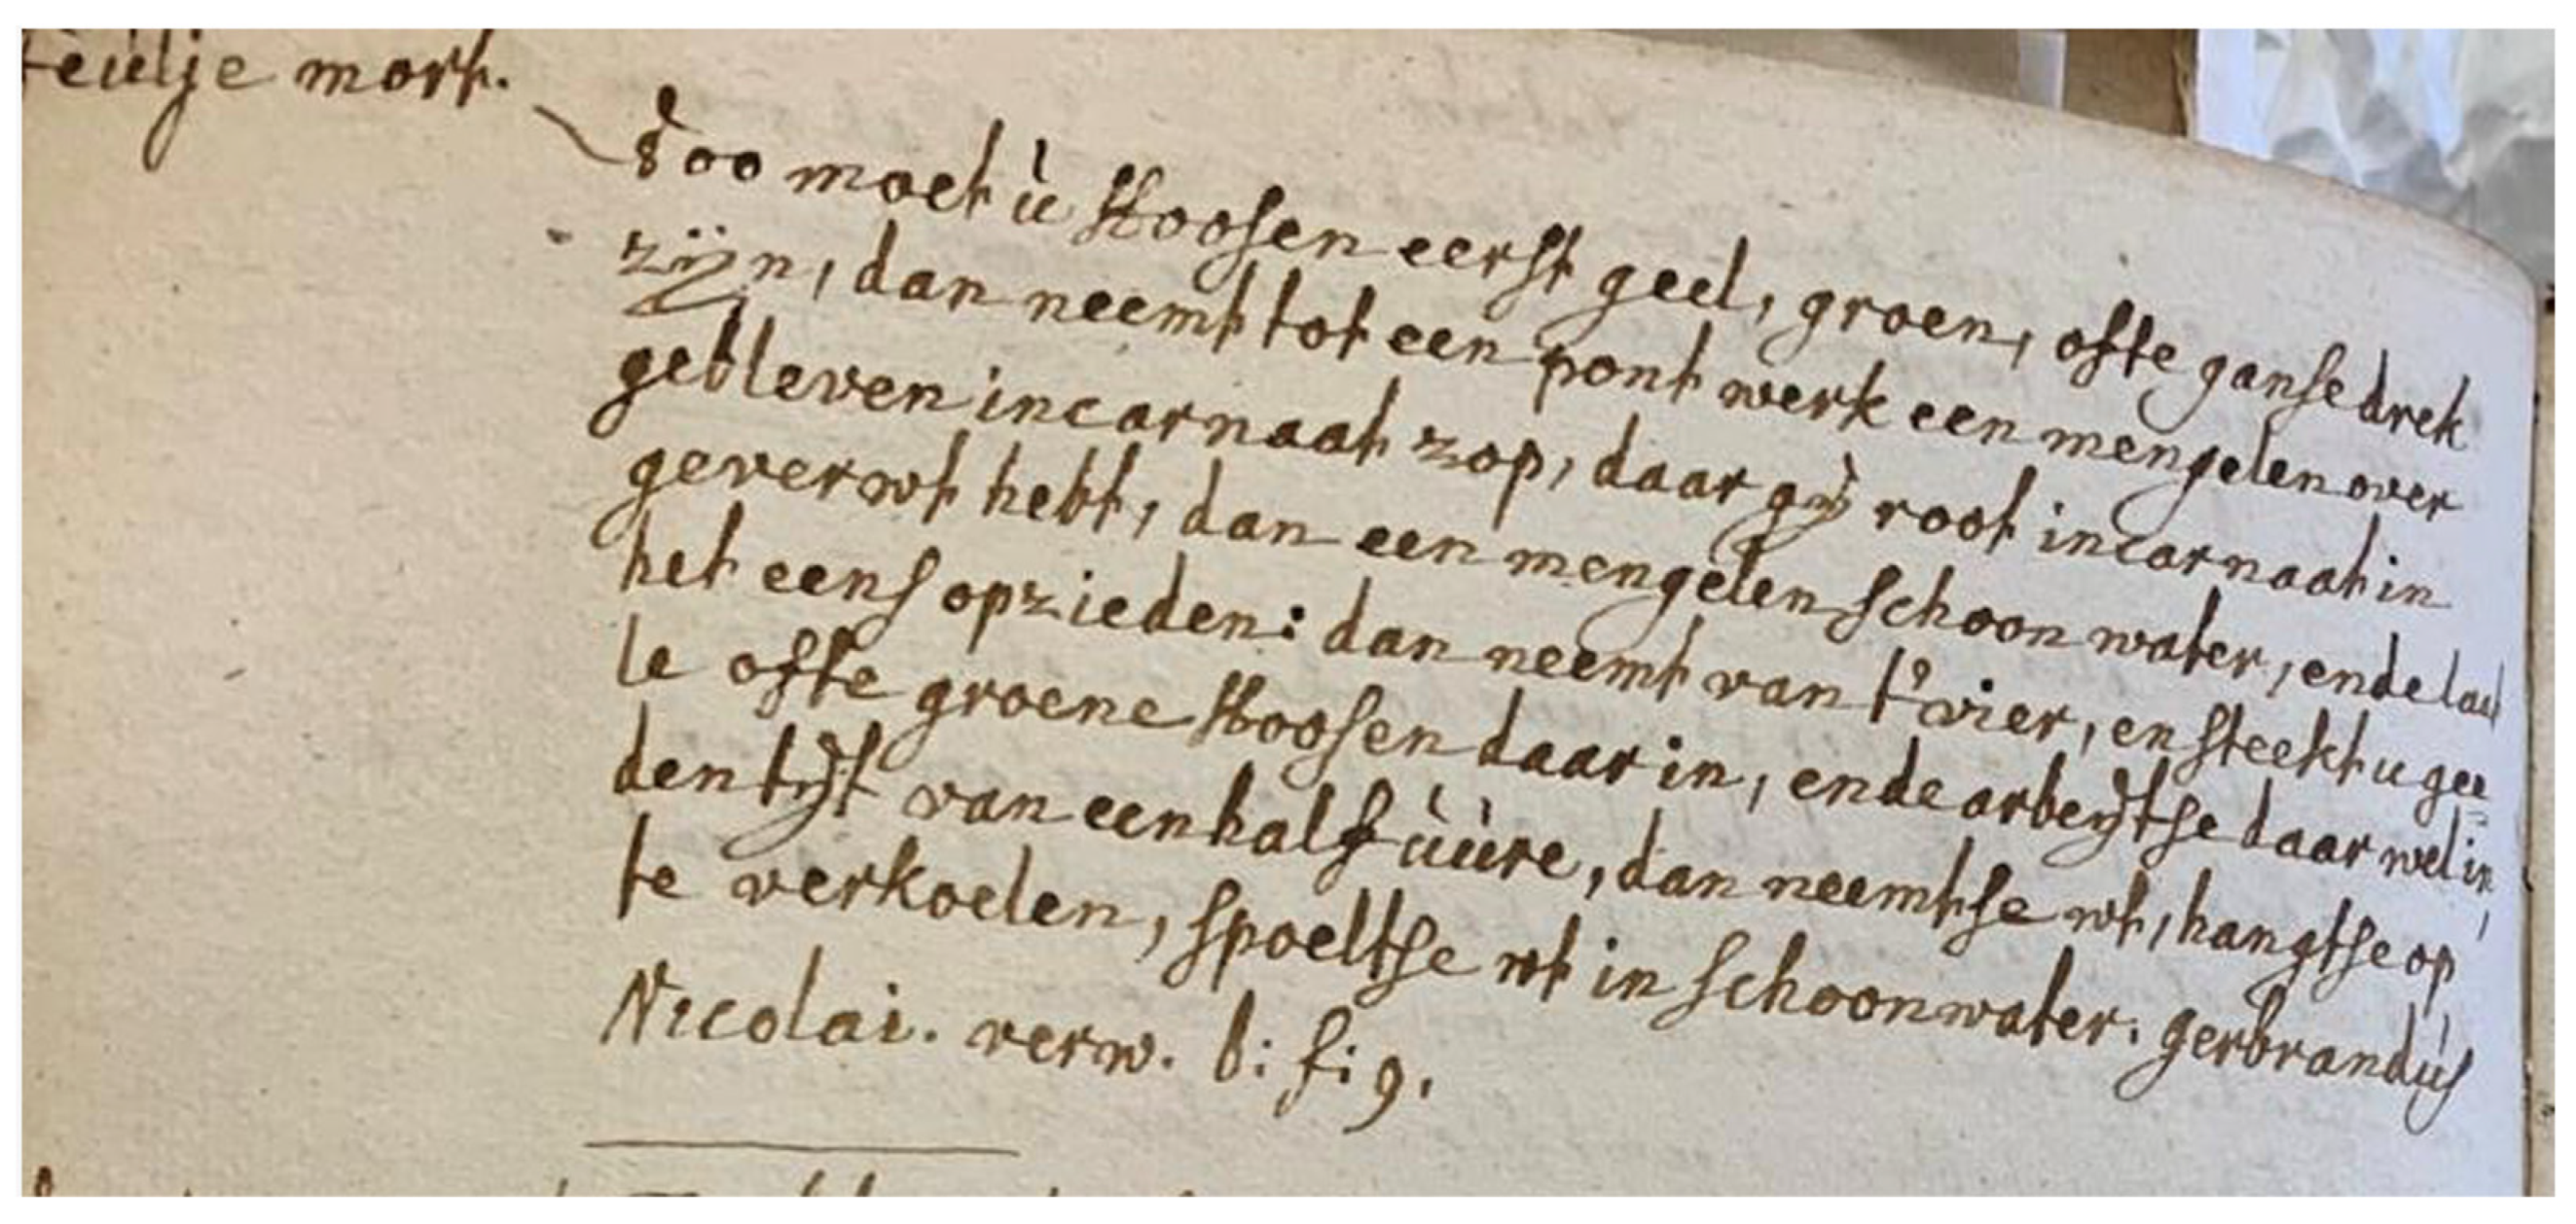 feulje mort.
Soo moet ù Koosen eerst geel, groen, ofte gansedrek
zijn, dan neemt tot een pont werk een mengelen over
gebleven incarnaat zop, daar gÿ root incarnaat in
geverwt hebt, dan een mengelen schoon water, ende laet
het eens opzieden: dan neemt van t'vier, en steekt u gee=
le ofte groene Koosen daar in, ende arbeÿtse daar wel in,
den tÿt van een half ùùre, dan neemtse wt, hangtse op
te verkoelen, spoeltse wt in schoon water. gerbrandùs
Nicolai. verw. b: f: 9.